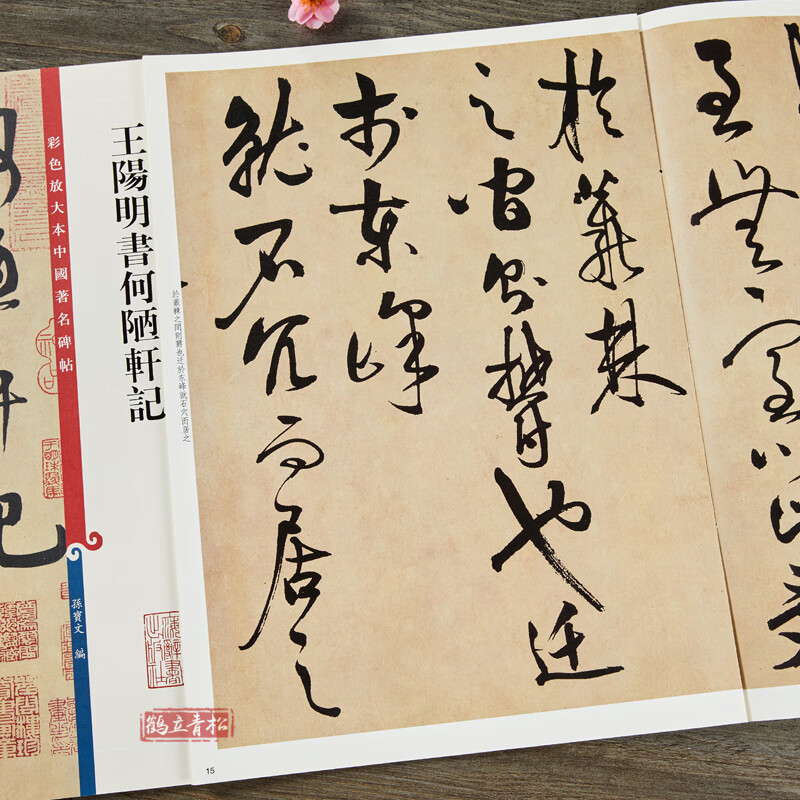 至無室以止
於叢棘
之間則鬱也迁
於東峰
就石穴而居之
於叢棘之間則鬱也迁於東峰就石穴而居之
15
王陽明書何陋軒記
彩色放大本中國著名碑帖
孫寶文 編
鹤立青松